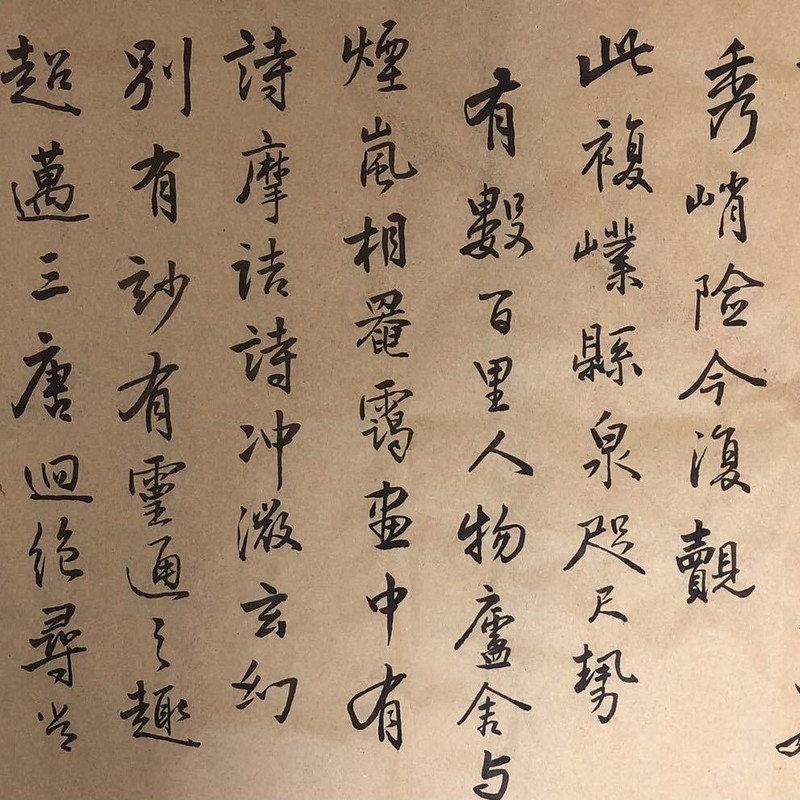 秀峭險今復覿
此複嶫縣泉咫尺勢
有數百里人物廬舍与
煙嵐相罨靄畫中有
詩摩詰詩冲澂玄幻
別有訬有靈通之趣
超邁三唐迥絶尋常